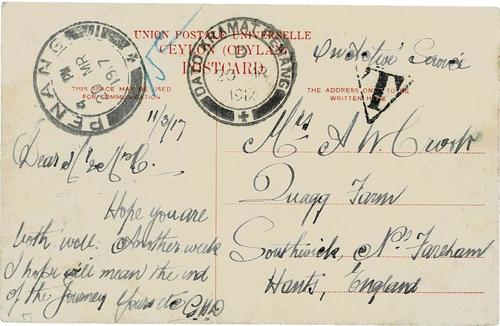 UNION POSTALE UNIVERSELLE
CEYLON (CEYLAN)
POSTCARD
THIS PLACE MAY BE USED
FOR COMMUNICATION
THE ADDRESS ONLY TO BE
WRITTEN HERE
PENANG
MR
1917
DATO KRAMAT PENANG
1917
T
On Active Service
11/3/17
Dear Mr & Mrs C.
Hope you are
both well. Another week
I hope will mean the end
of the Journey Yours &c GHD
Mrs A W Crook
Quagg Farm
Southwick, Nr Fareham
Hants, England